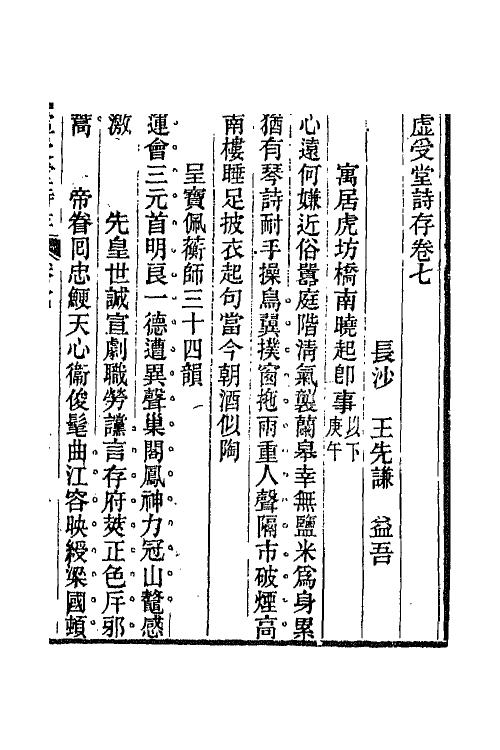 虛受堂詩存卷七
長沙　王先謙　益吾
寓居虎坊橋南曉起卽事以下庚午
心遠何嫌近俗囂庭階淸氣襲蘭皋幸無鹽米爲身累
猶有琴詩耐手操鳥翼撲窗拖雨重人聲隔市破煙高
南樓睡足披衣起句當今朝酒似陶
呈寶佩蘅師三十四韻
運會三元首明良一德遭異聲巢閣鳳神力冠山鼇感
激　　先皇世誠宣劇職勞讜言存府莢正色斥邪
蒿　帝眷囘忠鯁天心衞俊髦曲江容映綬梁國頓